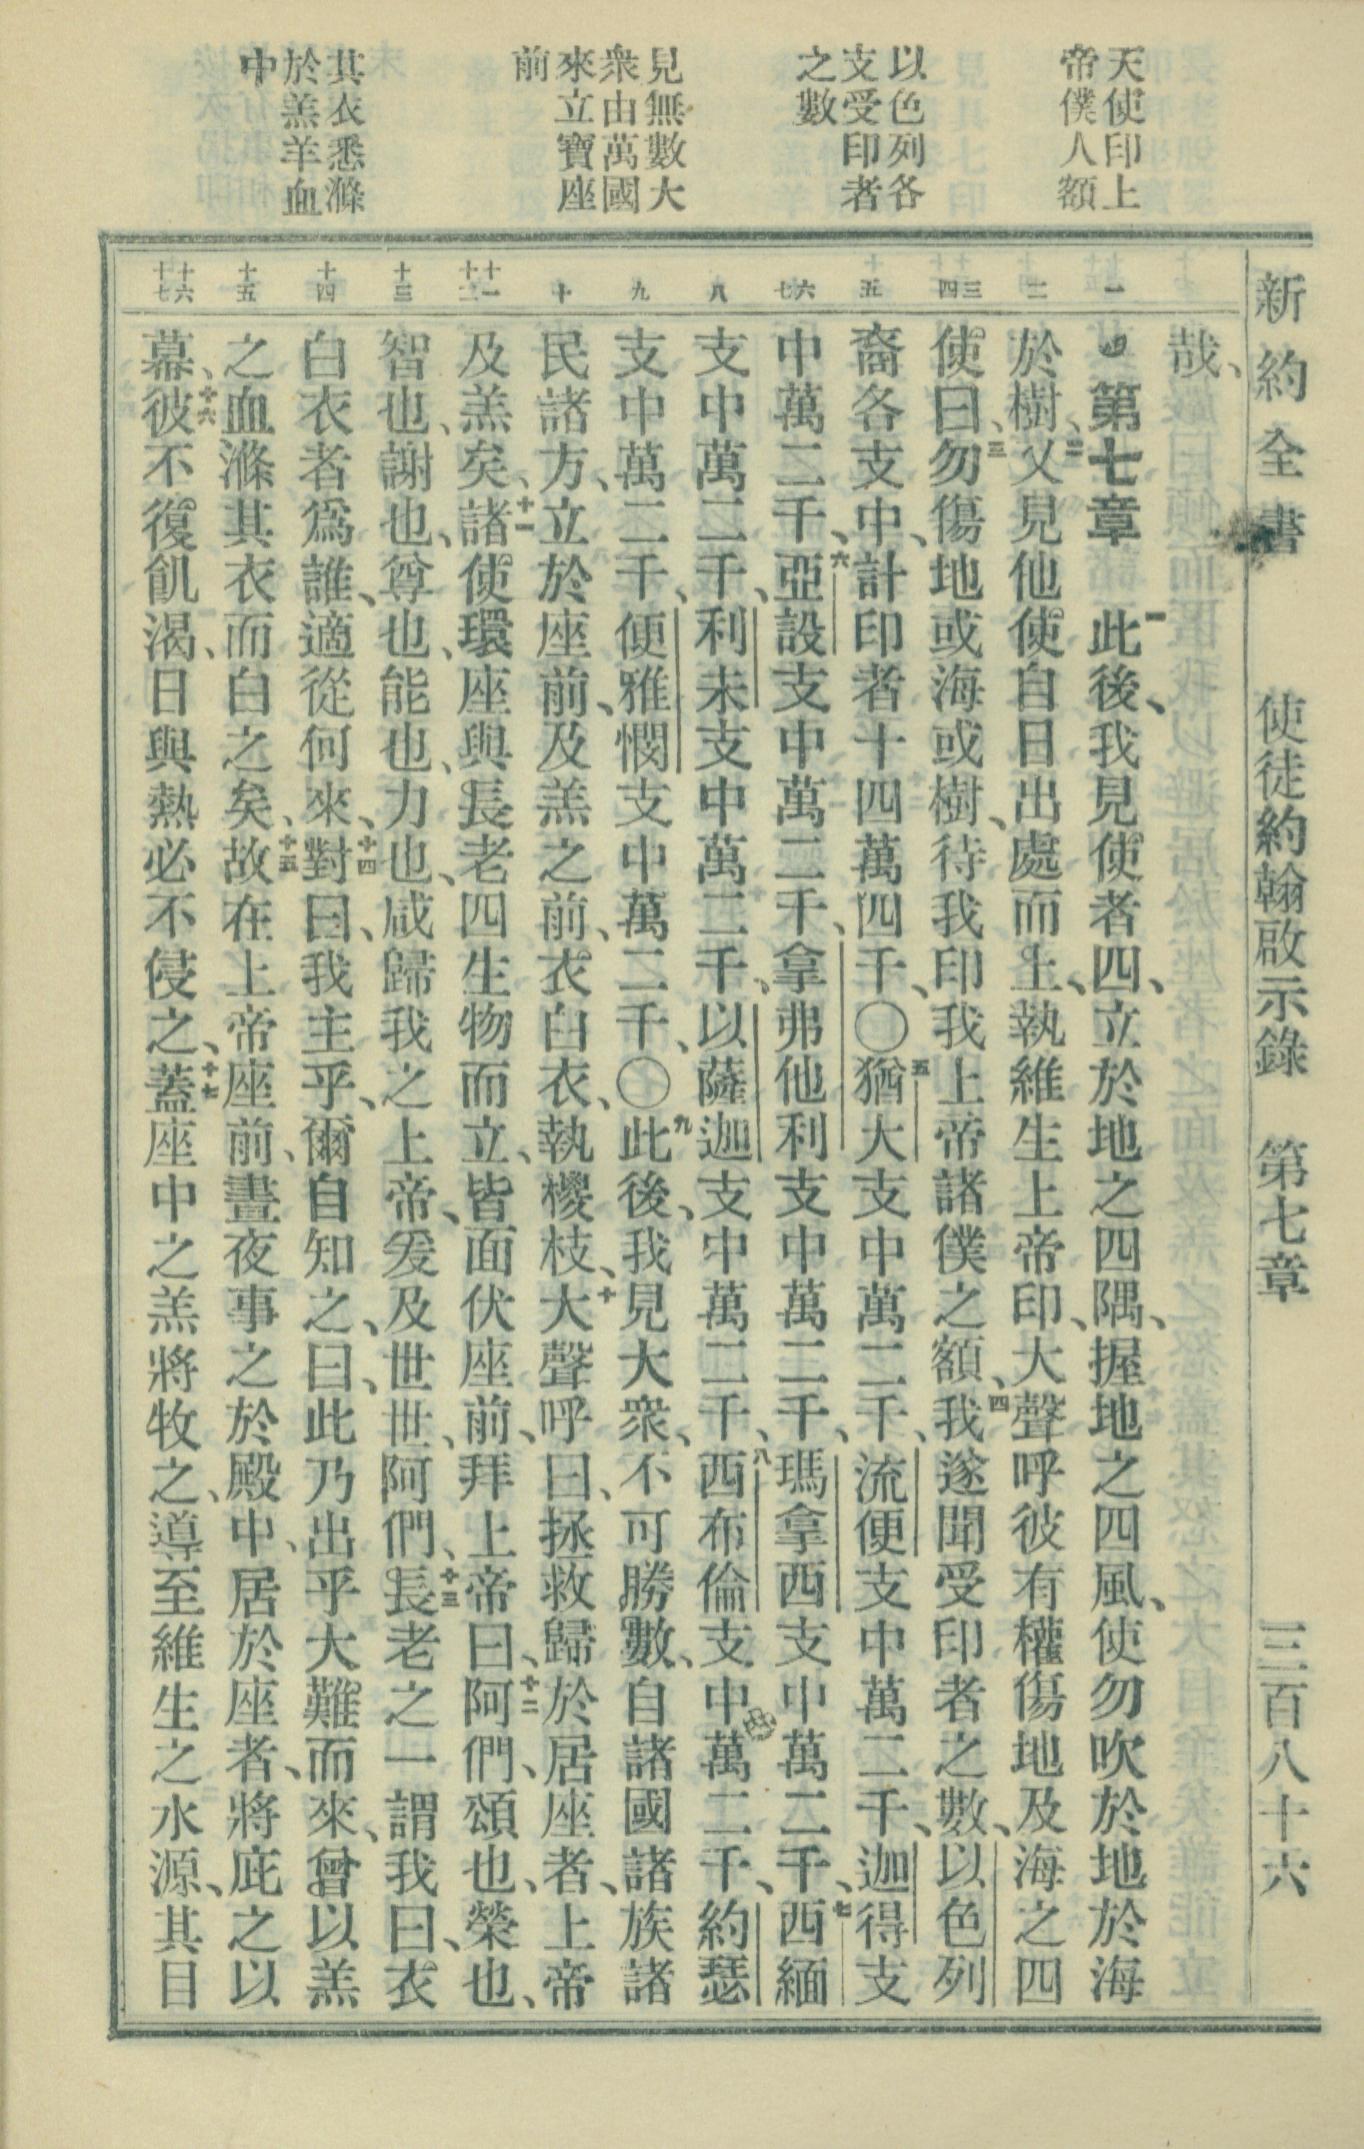 新約全書　使徒約翰啟示錄　第七章　三百八十六
天使印上
帝僕人額
以色列各
支受印者
之數
見無數大
衆由萬國
來立寶座
前
其衣悉滌
於羔羊血
中
一
二
三
四
五
六
七
八
九
十
十一
十二
十三
十四
十五
十六
十七
哉、
第七章　一此後、我見使者四、立於地之四隅、握地之四風、使勿吹於地於海
於樹、二又見他使自日出處而上、執維生上帝印、大聲呼彼有權傷地及海之四
使曰、三勿傷地或海或樹、待我印我上帝諸僕之額、四我遂聞受印者之數、以色列
裔各支中、計印者十四萬四千、〇五猶大支中萬二千、流便支中萬二千、迦得支
中萬二千、六亞設支中萬二千、拿弗他利支中萬二千、瑪拿西支中萬二千、七西緬
支中萬二千、利未支中萬二千、以薩迦支中萬二千、八西布倫支中萬二千、約瑟
支中萬二千、便雅憫支中萬二千、〇九此後、我見大衆、不可勝數、自諸國諸族諸
民諸方、立於座前、及羔之前、衣白衣、執椶枝、十大聲呼曰、拯救歸於居座者、上帝
及羔矣、十一諸使環座與長老四生物而立、皆面伏座前、拜上帝曰、十二阿們、頌也、榮也、
智也、謝也、尊也、能也、力也、咸歸我之上帝、爰及世世、阿們、十三長老之一謂我曰、衣
白衣者爲誰、適從何來、十四對曰、我主乎、爾自知之、曰、此乃出乎大難而來、曾以羔
之血滌其衣而白之矣、十五故在上帝座前、晝夜事之於殿中、居於座者、將庇之以
幕、十六彼不復飢渴、日與熱必不侵之、十七蓋座中之羔將牧之、導至維生之水源、其目